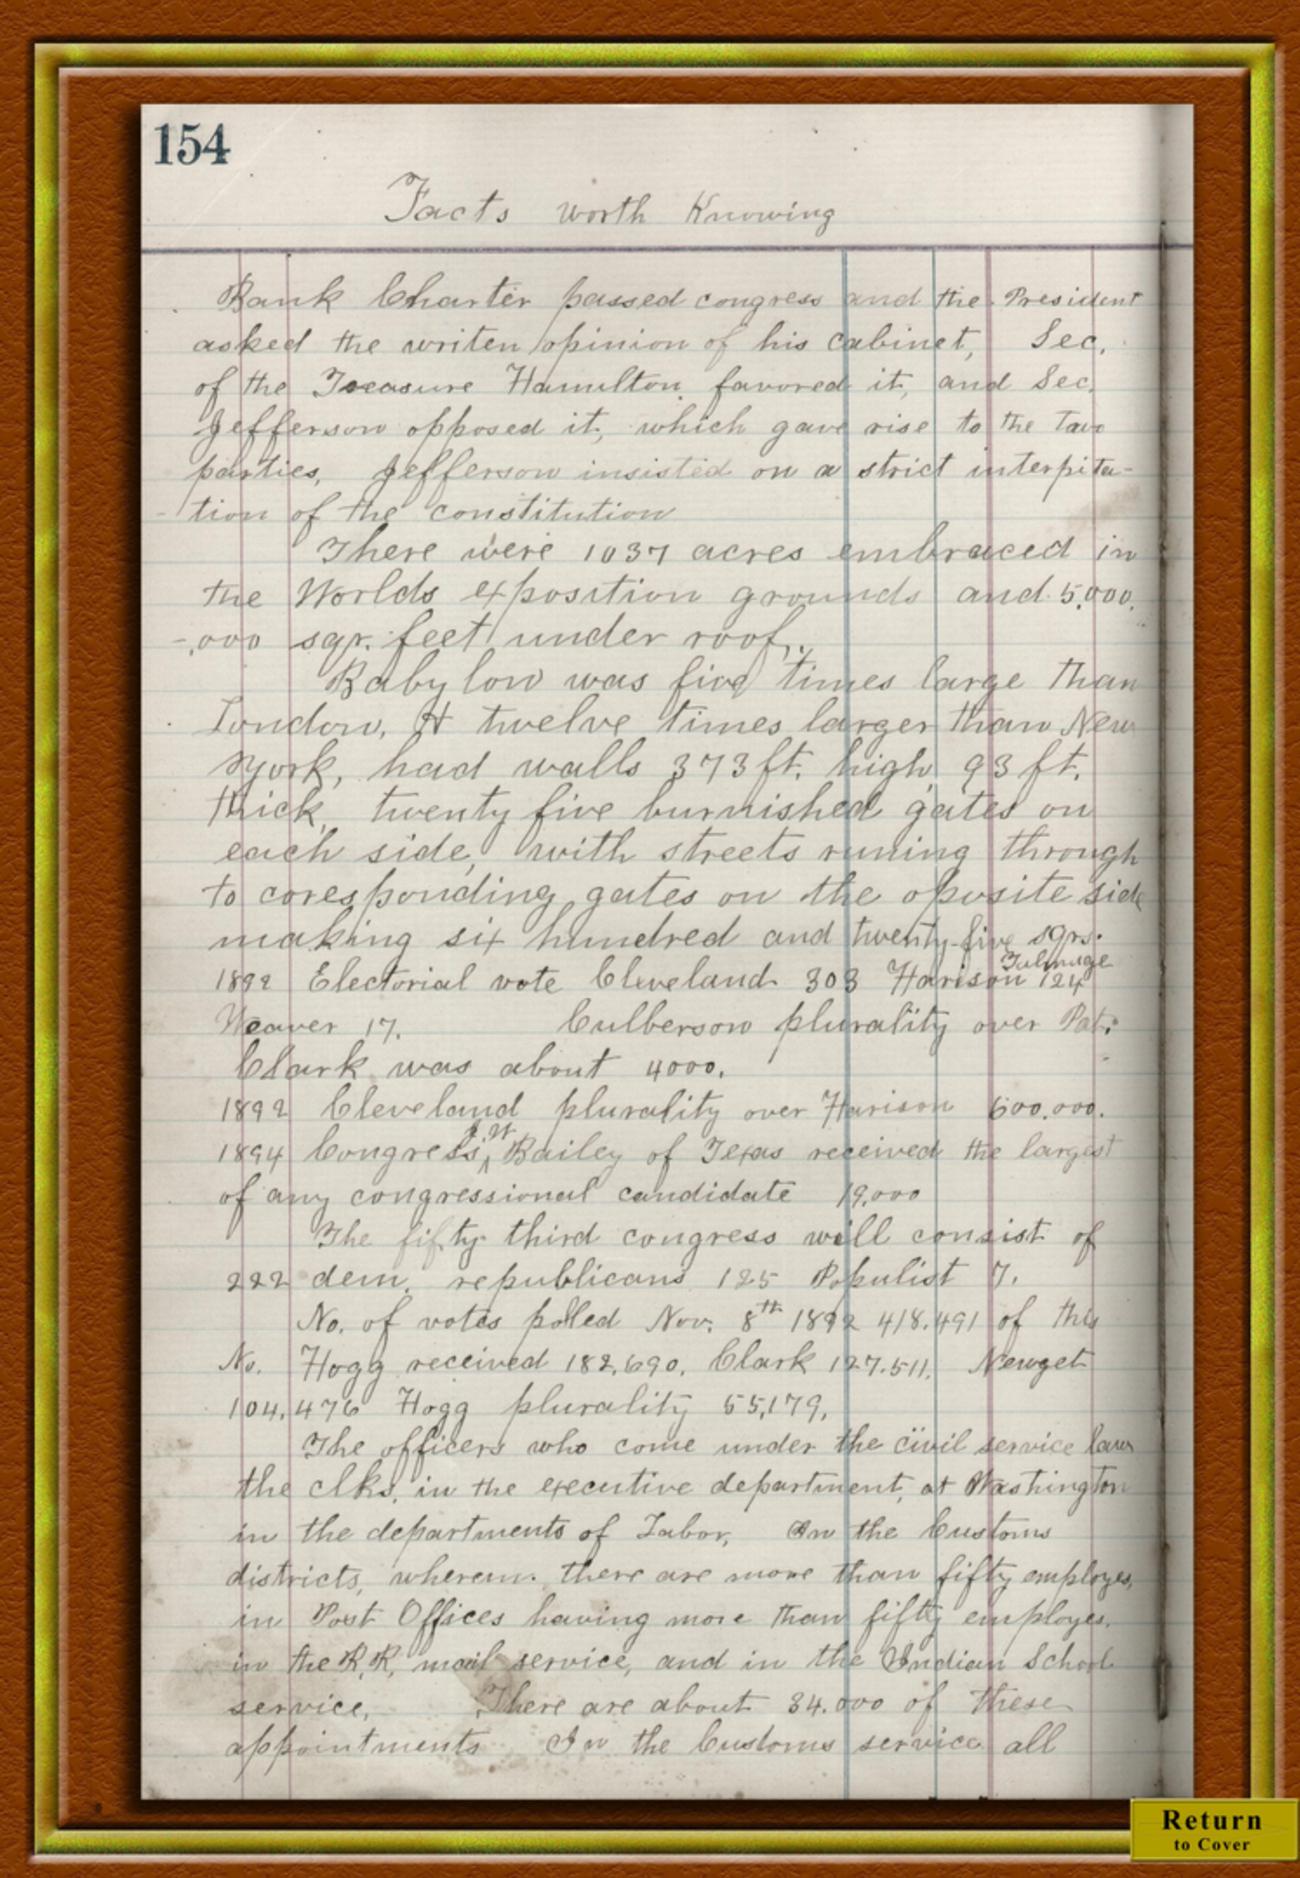 154
Facts worth Knowing
Bank Charter passed congress and the President
asked the writen opinion of his cabinet, Sec.
of the Treasure Hamilton favored it, and Sec.
Jefferson opposed it, which gave rise to the two
parties, Jefferson insisted on a strict interpita-
-tion of the constitution
There were 1037 acres embraced in
the Worlds exposition grounds and 5,000,
-,000 sqr. feet under roof,
Babylow was five times large than
London, & twelve times larger than New
York, had walls 373 ft. high 93 ft.
thick, twenty five burnished gates on
each side, with streets runing through
to coresponding gates on the oposite side
making six hundred and twenty-five sqrs.
Talmage
1892 Electorial vote Cleveland 303 Harison 124
Weaver 17. Culberson plurality over Pat.
Clark was about 4000.
1892 Cleveland plurality over Harison 600.000.
1894 Congress, J W Bailey of Texas received the largest
of any congressional candidate 19,000
The fifty third congress will consist of
222 dem. republicans 125 Populist 7.
No. of votes polled Nov. 8th 1892 418,491 of this
No. Hogg received 182,690, Clark 127.511. Newget
104,476 Hogg plurality 55,179,
The officers who come under the civil service laws
the clks, in the executive department, at Washington
in the departments of Labor, In the Customs
districts, wherein there are more than fifty employes,
in Post Offices having more than fifty employes.
in the R,R, mail service, and in the Indian School
service, There are about 34.000 of these
appointments In the Customs service all
Return
to Cover